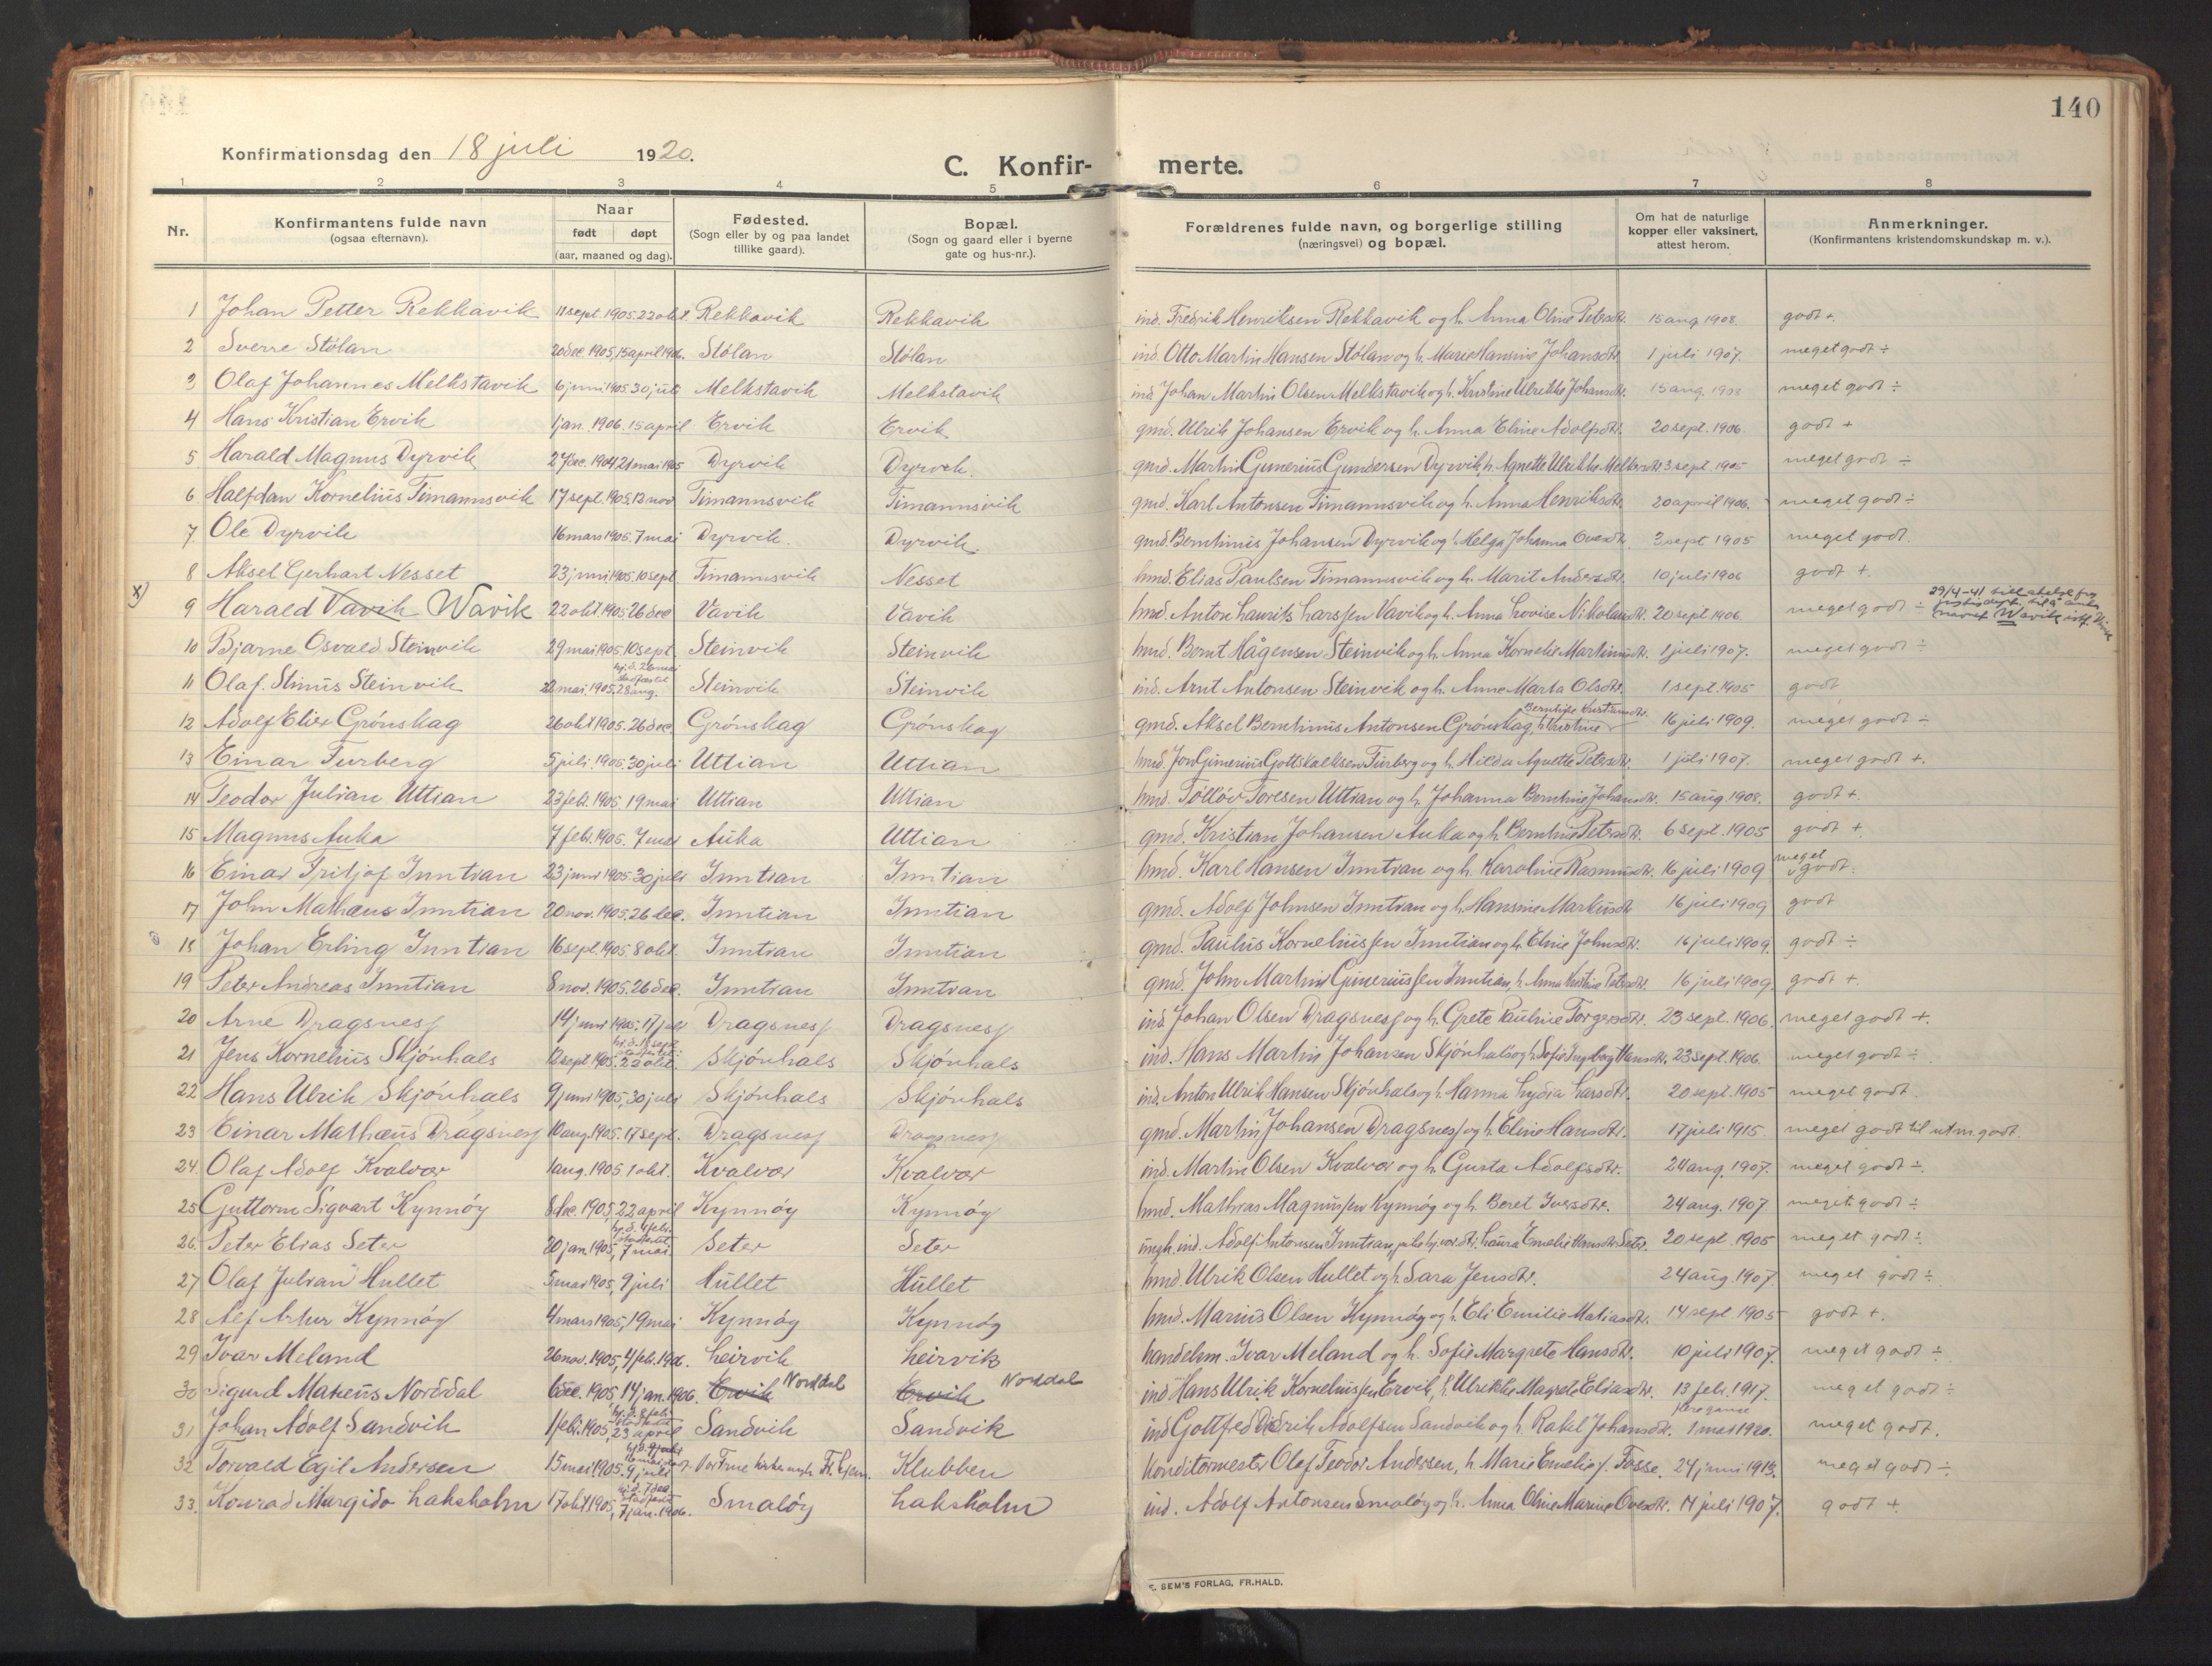 140
Konfirmationsdag den 18 juli 1920.
C. Konfirmerte.
1 2 3 4 5 6 7 8
Nr. Konfirmantens fulde navn (ogsaa efternavn). Naar født døpt (aar, maaned og dag). Fødested. (Sogn eller by og paa landet tillike gaard). Bopæl. (Sogn og gaard eller i byerne gate og hus-nr.). Forældrenes fulde navn, og borgerlige stilling (næringsvei) og bopæl. Om hat de naturlige kopper eller vaksinert, attest herom. Anmerkninger. (Konfirmantens kristendomskundskap m. v.).
1 Johan Petter Rekkavik 11 sept 1905. 22 okt. Rekkavik Rekkavik ind. Fredrik Henriksen Rekkavik og h. Anna Oline Petersdtr. 15 aug 1908. godt +.
2 Sverre Stólan 20 dec. 1905, 15 april 1906. Stólan Stólan ind. Otto Martin Hansen Stólan og h. Marie Hansine Johansdtr. 1 juli 1907. meget godt ÷
3 Olaf Johannes Melkstavik 6 juni 1905. 30 juli Melkstavik Melkstavik ind. Johan Martin Olsen Melkstavik og h. Kristine Ulrikke Johansdtr. 15 aug. 1908 meget godt ÷
4 Hans Kristian Ervik 1 jan. 1906. 15 april Ervik Ervik gmd. Ulrik Johansen Ervik og h. Anna Eline Adolfsdtr. 20 sept. 1906. godt +
5 Harald Magnus Dyrvik 27 dec. 1904, 21 mai 1905 Dyrvik Dyrvik. gmd. Martin Gunerius Gundersen Dyrvik h. Agnette Ulrikke 3 sept. 1905 meget godt ÷
6 Halfdan Kornelius Timannsvik 17 sept. 1905. 12 nov. Timannsvik Timannsvik gmd. Karl Antonsen Timannsvik og h. Anna Henriksdtr. 20 april 1906. meget godt ÷
7. Ole Dyrvik 16 mars 1905. 7 mai Dyrvik. Dyrvik. gmd. Berntinus Johansen Dyrvik og h. Helga Johanna Ovesdtr. 3 sept 1905 meget godt.
8 Aksel Gerhart Nesset 23 juni 1905. 10 sept Timannsvik Nesset hmd. Elias Paulsen Timannsvik og h. Marit Andersdtr. 10 juli 1906 godt +.
x) 9 Harald Vavik Wavik 22 okt. 1905. 26 dec Vavik Vavik hmd. Anton Laurits Larssen Vavik og h. Anna Lovise Nikolaisdtr. 20 sept 1906. meget godt ÷ 29/4-41 navnet Wavik
10 Bjarne Osvald Steinvik 29 mai 1905. 10 sept Steinvik Steinvik hmd. Bernt Hågensen Steinvik og h. Anna Kornelie Martinusdtr. 1 juli 1907. meget godt ÷
11 Olaf. Stinus Steinvik 22 mai. 1905. hj. d. 26 mai stadfæstet 28 aug. Steinvik Steinvik ind. Arnt Antonsen Steinvik og h. Anne Marta Olsdtr. 1 sept. 1905 godt
12 Adolf Elier Grónskag 26 okt 1905. 26 dec. Grónskag Grónskag gmd. Aksel Berntinus Antonsen Grónskag, h. Kristine Berntine Kristiansdtr. 16 juli 1909. meget godt ÷
13 Einar Furberg 5 juli. 1905. 30 juli Uttian Uttian hmd. Jon Gunerius Gottskalksen Furberg og h. Hilda Agnette Petersdtr. 1 juli 1907. meget godt +.
14 Teodor Julian Uttian 23 febr. 1905. 19 mai Uttian Uttian hmd. Tollóv Toresen Uttian og h. Johanna Berntine Johansdtr. 15 aug. 1908. godt +.
15 Magnus Auka 7 febr. 1905. 7 mai Auka Uttian gmd. Kristian Johansen Auka og h. Berntine Petersdtr. 6 sept. 1905 godt +.
16 Einar Fritjof Inntian 23 juni 1905. 30 juli Inntian Inntian hmd. Karl Hansen Inntian og h. Karoline Rasmusdtr. 16 juli 1909 meget godt.
17 John Mathæus Inntian 20 nov. 1905. 26 dec. Inntian Inntian gmd. Adolf Johnsen Inntian og h. Hansine Markusdtr. 16 juli 1909 godt
18 Johan Erling Inntian 16 sept. 1905. 8 okt. Inntian Inntian gmd. Paulus Korneliussen Inntian og h. Eline Johnsdtr. 16 juli 1909. godt ÷
19 Peter Andreas Inntian 8 nov. 1905. 26 dec. Inntian Inntian gmd. John Martin Guneriussen Inntian, h. Anna Kristine Petersdtr. 16 juli 1909. godt +.
20 Arne Dragsness 14 juni 1905. 17 juli Dragsness Dragsness ind. Johan Olsen Dragsness og h. Grete Pauline Torgersdtr. 23 sept. 1906. meget godt +.
21 Jens Kornelius Skjónhals 12 sept. 1905. hj. d. 18 sept. 22 okt. Skjónhals Skjónhals ind. Hans Martin Johansen Skjónhals og h. Sofie Ingeborg Hansdtr. 23 sept. 1906 meget godt ÷
22 Hans Ulrik Skjónhals 9 juni 1905, 30 juli Skjónhals Skjónhals ind. Anton Ulrik Hansen Skjónhals og h. Hanna Lydia Larsdtr. 20 sept. 1905 meget godt.
23 Einar Mathæus Dragsness 10 aug. 1905. 17 sept. Dragsness Dragsness gmd. Martin Johansen Dragsness og h. Eline Hansdtr. 17 juli 1915. meget godt til utm. godt.
24. Olaf Adolf Kvalvær 1 aug. 1905 1 okt. Kvalvær Kvalvær ind. Martin Olsen Kvalvær og h. Gusta Adolfsdtr. 24 aug. 1907. meget godt ÷.
25 Guttorm Sigvart Kynnóy 8 dec. 1905, 22 april Kynnóy Kynnóy hmd. Mathias Magnussen Kynnóy og h. Beret Iversdtr. 24 aug. 1907 meget godt ÷
26. Peter Elias Seter 20 jan. 1905, hj. d. 4 febr. 7 mai Seter Seter ungk. ind. Adolf Antonsen Inntian, Laura Emelie Hansdtr. Seter. 20 sept. 1905 meget godt ÷
27 Olaf Julian Hullet 5 mai 1905, 9 juli Hullet Hullet hmd. Ulrik Olsen Hullet og h. Sara Jensdtr. 24 aug. 1907 meget godt ÷
28 Alf Artur Kynnóy 4 mars 1905, 19 mai Kynnóy Kynnóy hmd. Marius Olsen Kynnóy og h. Eli Emilie Matiasdtr. 14 sept. 1905 godt +.
29 Ivar Meland 26 nov. 1905, 4 feb. 1906. Leirvik Leirvik handelsm. Ivar Meland og h. Sofie Margrete Hansdtr. 10 juli 1907. meget godt ÷
30 Sigurd Mateus Norddal 6 dec. 1905, 14 jan. 1906. Ervik Norddal Ervik Norddal ind Hans Ulrik Korneliussen Ervik, h. Ulrikke Magrete Eliasdtr. 13 feb. 1917. meget godt ÷
31 Johan Adolf Sandvik 1 febr. 1905, hj. d. 8 febr. 23 april Sandvik Sandvik ind Gottfred Didrik Adolfsen Sandvik og h. Rakel Johansdtr. flere gange 1 mai 1920. meget godt.
32 Torvald Egil Andersen 15 mai 1905. 9 juli Vor Frue kirke Tr.hjem. Klubben konditormester Olaf Teodor Andersen, h. Marie Emelie f. Fosse. 24 juni 1913. meget godt ÷.
33. Konrad Margido Laksholm 17 okt. 1905, hj. d. 7 dec. 7 jan. 1906. Smalóy Laksholm ind. Adolf Antonsen Smalóy og h. Anna Oline Marine Ovesdtr. 14 juli 1907. godt +.
E. SEM'S FORLAG, FR.HALD.